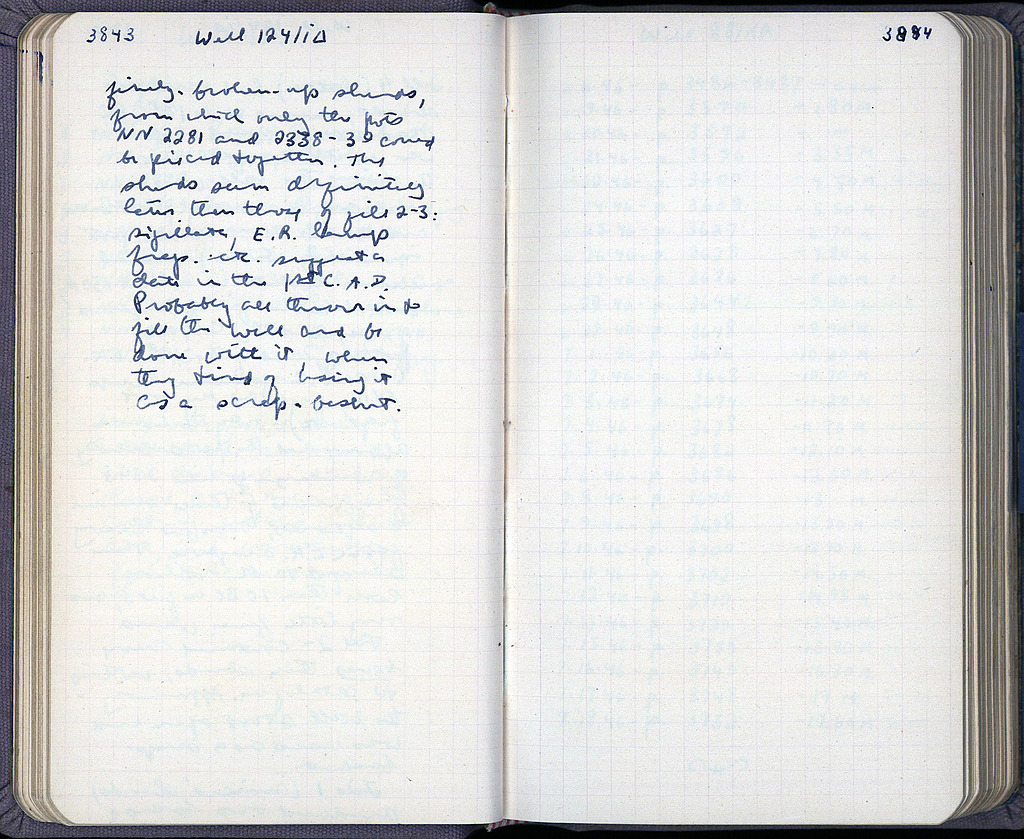 3843
Well 124/ΙΔ
3884
finely-broken-up sherds,
from which only the pots
NN 2281 and 2338-39 could
be pieced together. The
sherds seem definitely
later than those of fill 2-3:
sigillata, E.R. lamp
frags. etc. suggest a
date in the 1st C. A.D.
Probably all thrown in to
fill the well and be
done with it, when
they tired of using it
as a scrap-basket.